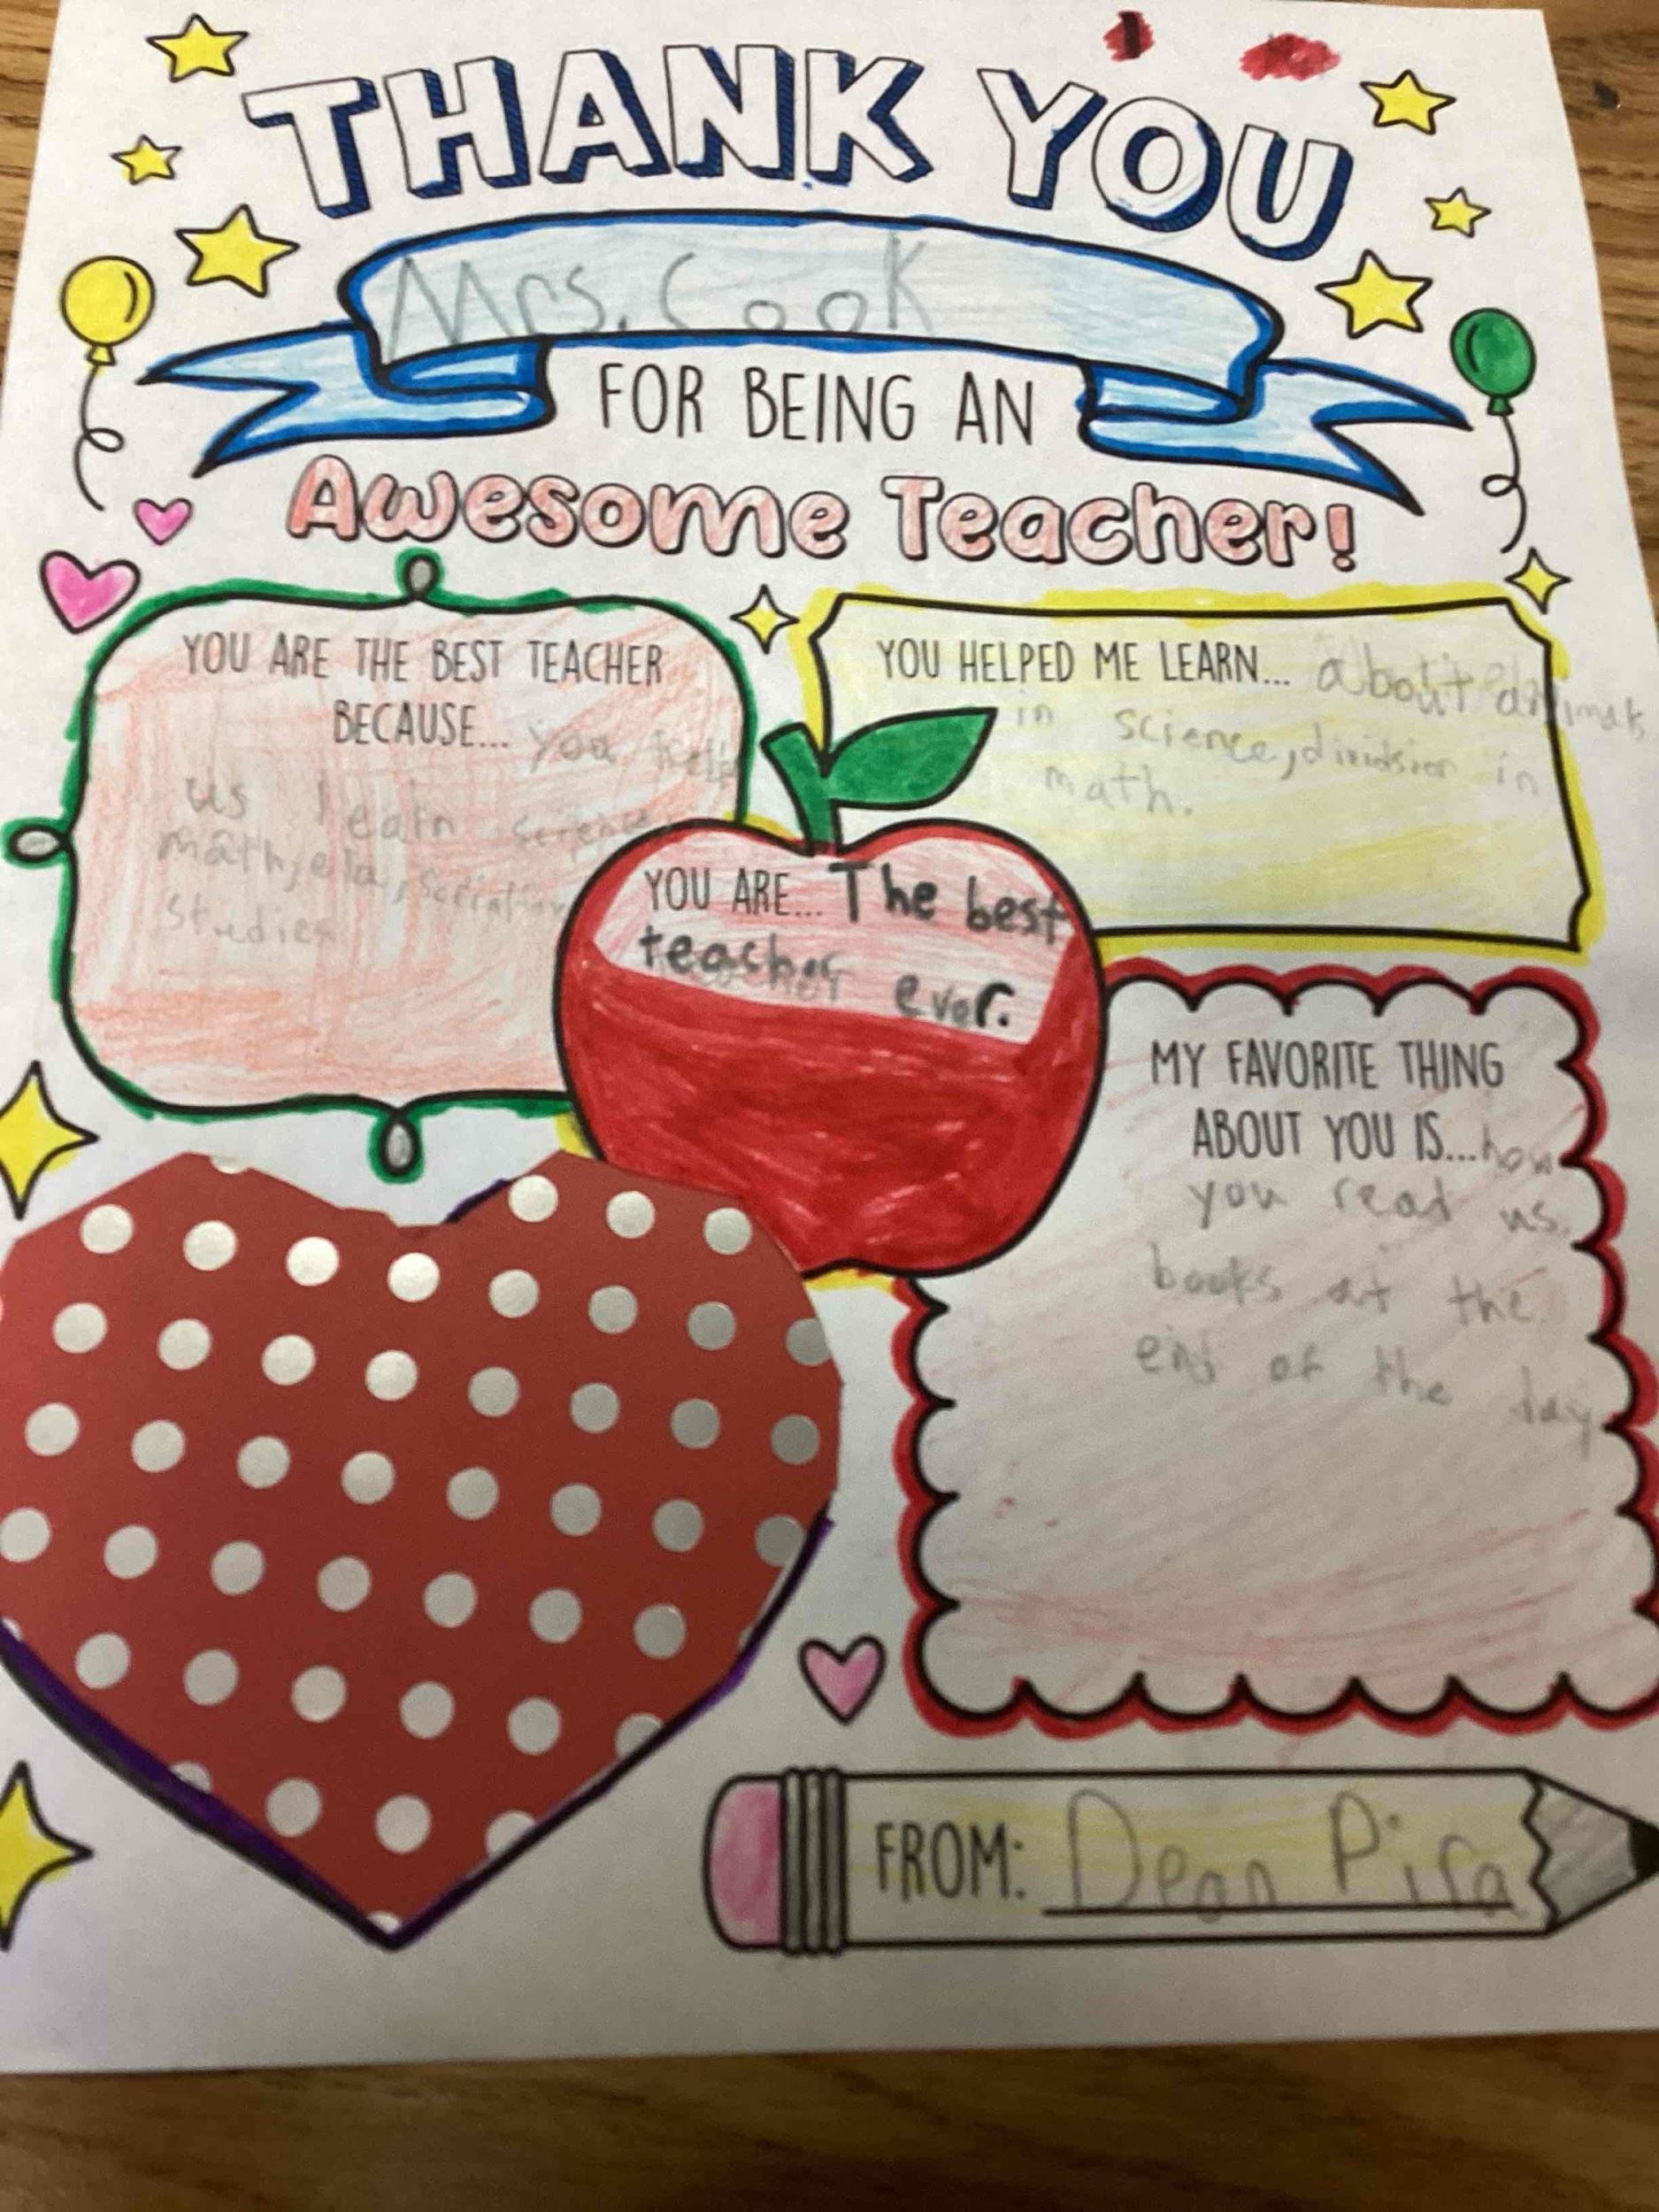 THANK YOU
Mrs. Cook
FOR BEING AN
Awesome Teacher!
YOU ARE THE BEST TEACHER
BECAUSE... you help
us learn science
math, ela,
studies
YOU HELPED ME LEARN... about animals
in science, division in
math.
YOU ARE... The best
teacher ever.
MY FAVORITE THING
ABOUT YOU IS... how
you read us
books at the
end of the day
FROM: Dean Pira